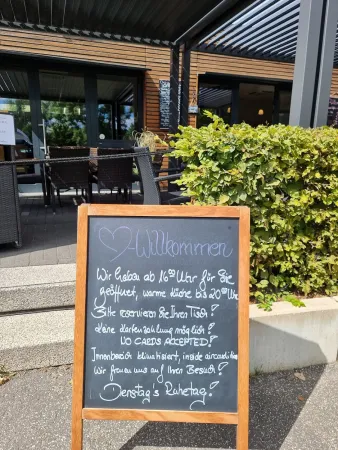 ♡ Willkommen
Wir haben ab 16⁰⁰ Uhr für Sie
geöffnet, warme Küche bis 20⁰⁰ Uhr
Bitte reservieren Sie Ihren Tisch!
Keine Kartenzahlung möglich!
NO CARDS ACCEPTED!
Innenbereich klimatisiert, inside aircondition
Wir freuen uns auf Ihren Besuch!
Dienstag's Ruhetag!